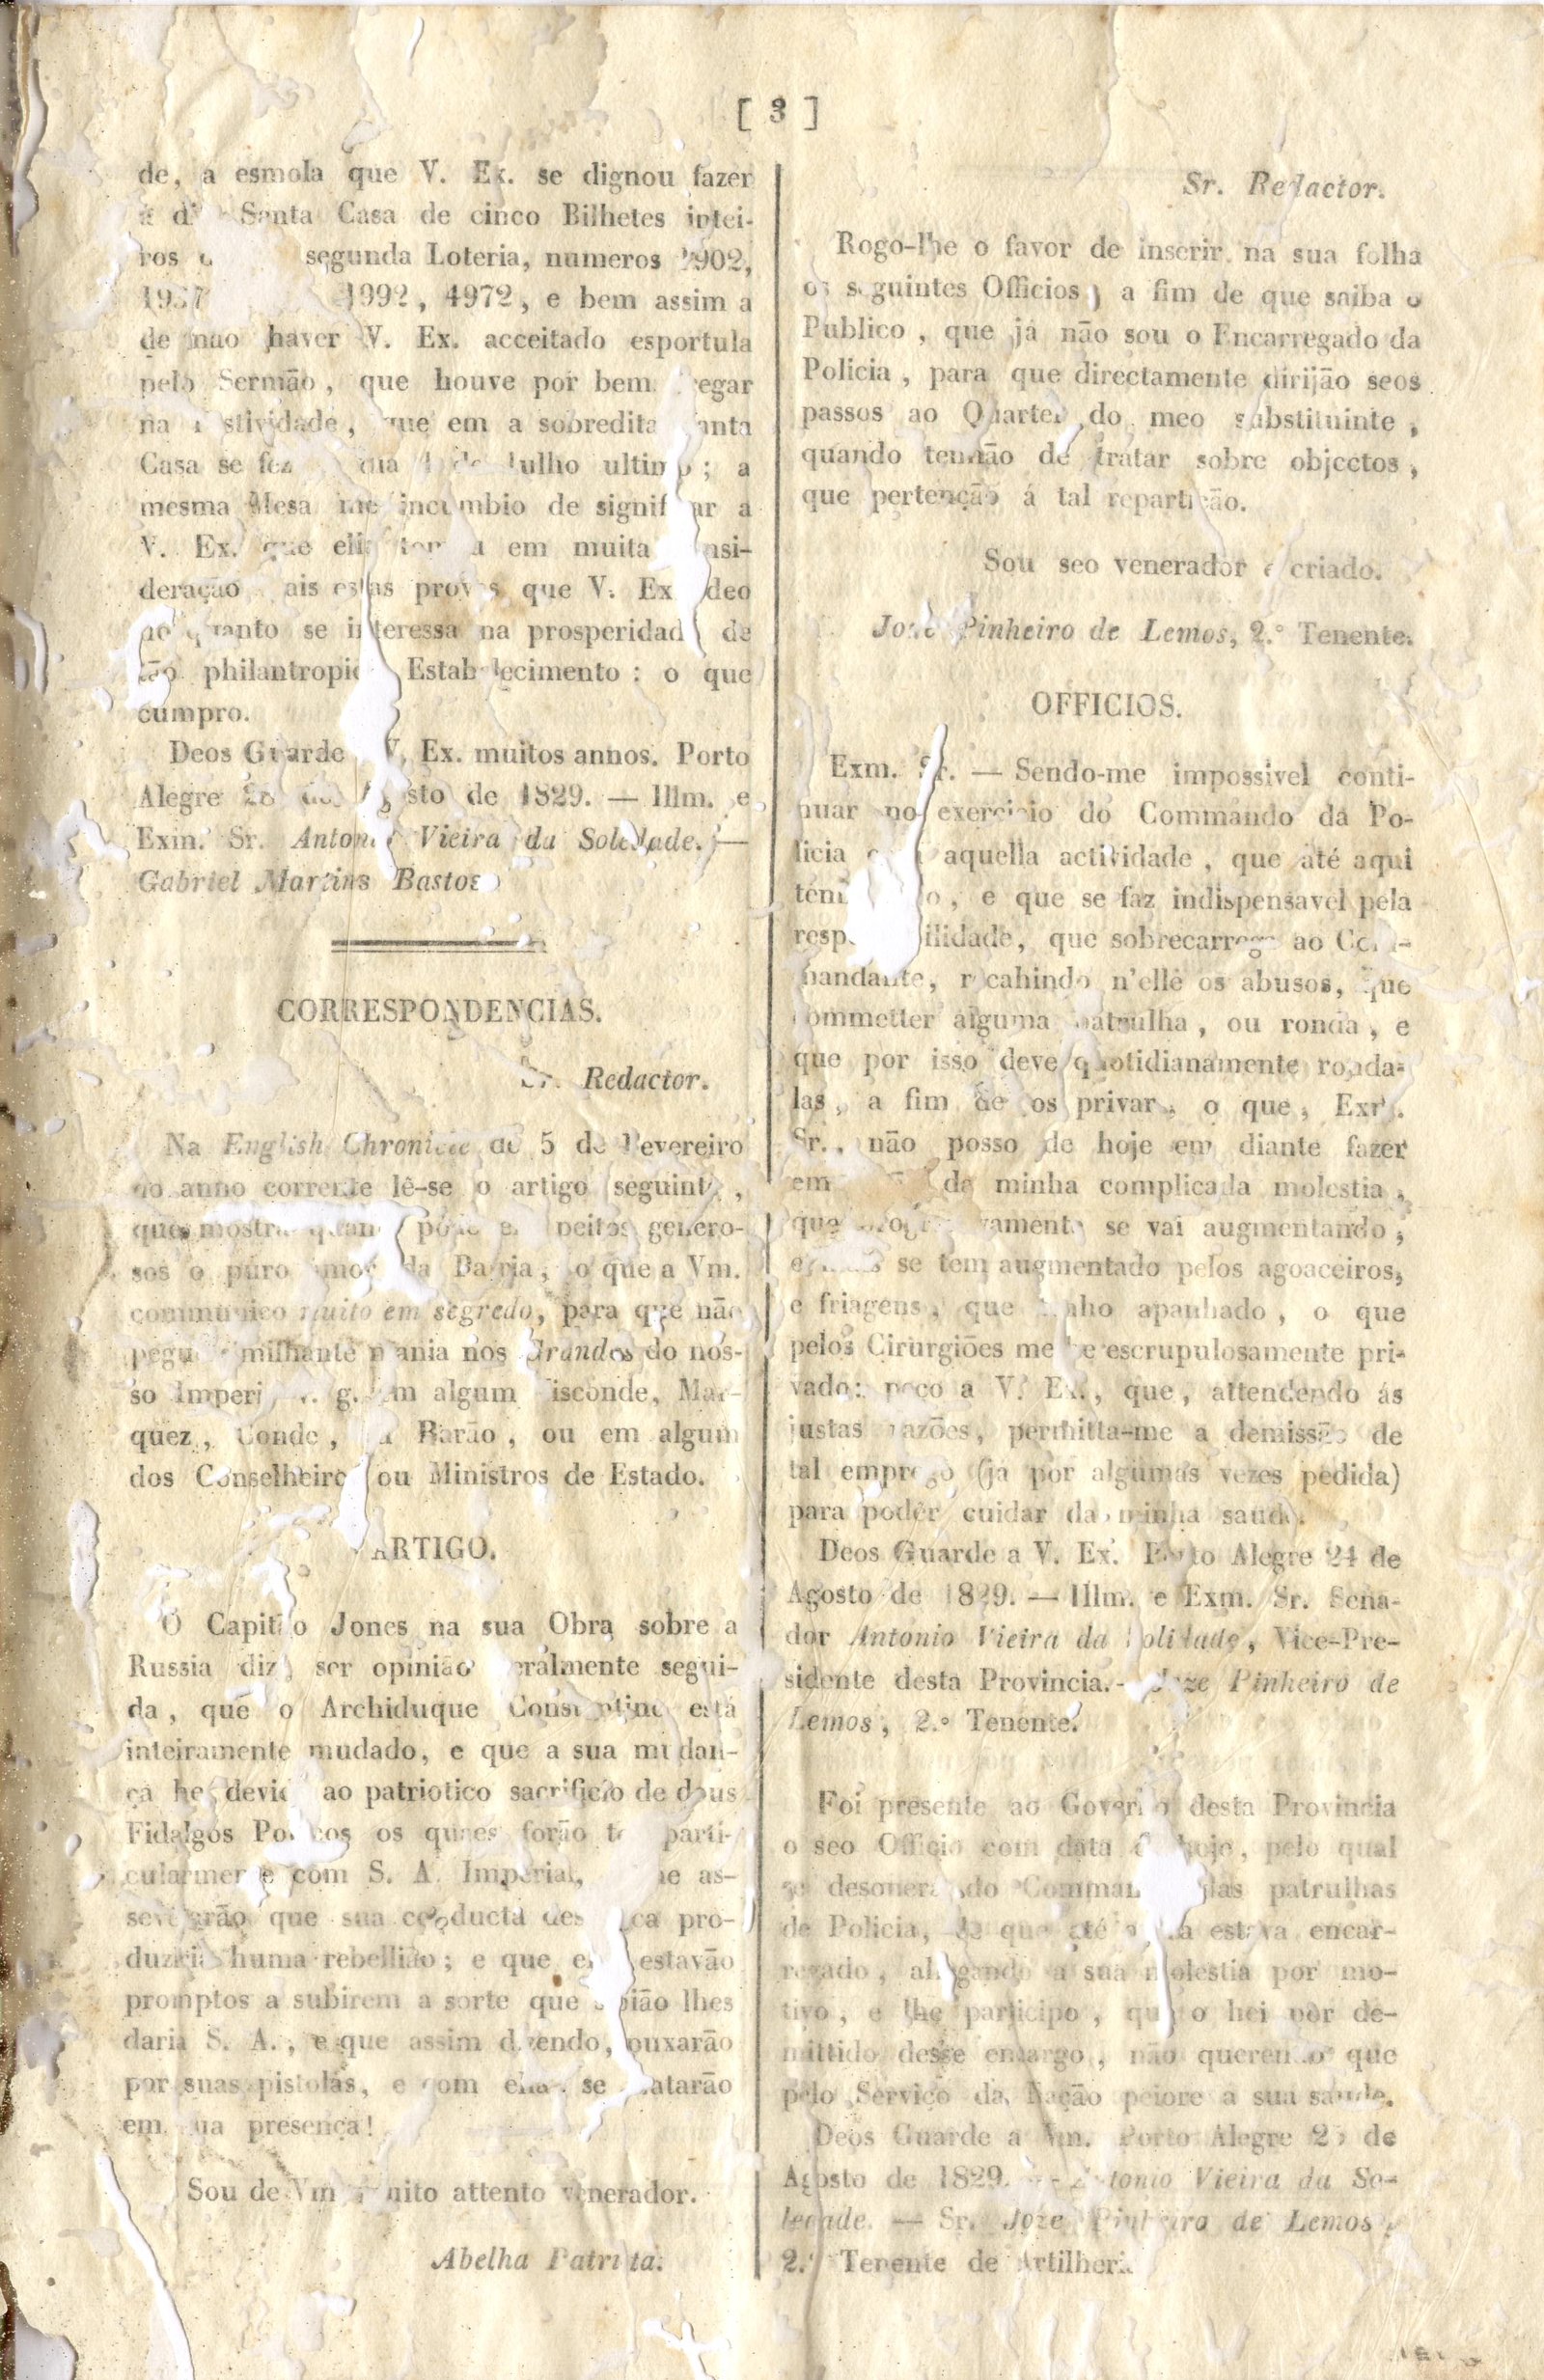 [ 3 ]
de, a esmola que V. Ex. se dignou fazer
á Santa Casa de cinco Bilhetes intei-
ros segunda Loteria, numeros
4972, e bem assim a
de não haver V. Ex. acceitado esportula
pelo Sermão, que houve por bem
na que em a sobredita
Casa se fez ultimo; a
mesma Mesa me incumbio de significar a
V. Ex. que em muita
deração estas provas que V. Ex. deo
quanto se interessa na prosperidade de
tão philantropico Estabelecimento: o que
cumpro.
Deos Guarde V. Ex. muitos annos. Porto
Alegre de Agosto de 1829. — Illm. e
Exm. Sr. Antonio Vieira da Soledade. —
Gabriel Martins Bastos
CORRESPONDENCIAS.
Sr. Redactor.
Na English Chronicle de 5 de Fevereiro
do anno corrente lê-se o artigo seguinte,
que mostra peitos genero-
sos o puro amor da Patria, o que a Vm.
communico muito em segredo, para que não
mania nos Grandes do nos-
so Imperio, v. g. em algum Visconde, Mar-
quez, Conde, Barão, ou em algum
dos Conselheiros ou Ministros de Estado.
ARTIGO.
O Capitão Jones na sua Obra sobre a
Russia diz ser opinião geralmente segui-
da, que o Archiduque Constantino está
inteiramente mudado, e que a sua mudan-
ça he devida ao patriotico sacrificio de dous
Fidalgos os quaes forão parti-
cularmente com S. A. Imperial, as-
severarão que sua conducta pro-
duziria huma rebellião; e que estavão
promptos a subirem a sorte que lhes
daria S. A., e que assim dizendo, puxarão
por suas pistolas, e com ellas se matarão
em sua presença!
Sou de Vm. muito attento venerador.
Abelha Patriota.
Sr. Redactor.
Rogo-lhe o favor de inserir na sua folha
os seguintes Officios, a fim de que saiba o
Publico, que já não sou o Encarregado da
Policia, para que directamente dirijão seos
passos ao Quartel do meo substituinte,
quando tenhão de tratar sobre objectos,
que pertenção á tal repartição.
Sou seo venerador e criado.
Joze Pinheiro de Lemos, 2.º Tenente.
OFFICIOS.
Exm. Sr. — Sendo-me impossivel conti-
nuar no exercicio do Commando da Po-
licia aquella actividade, que até aqui
e que se faz indispensavel pela
responsabilidade, que sobrecarrega ao Com-
mandante, recahindo n'elle os abusos, que
commetter alguma patrulha, ou ronda, e
que por isso deve quotidianamente ronda-
las, a fim de os privar, o que, Exm.
Sr., não posso de hoje em diante fazer
em da minha complicada molestia,
que progressivamente se vai augmentando,
e mais se tem augmentado pelos agoaceiros,
e friagens, que tenho apanhado, o que
pelos Cirurgiões me he escrupulosamente pri-
vado: peço a V. Ex., que, attendendo ás
justas razões, permitta-me a demissão de
tal emprego (ja por algumas vezes pedida)
para poder cuidar da minha saude.
Deos Guarde a V. Ex. Porto Alegre 24 de
Agosto de 1829. — Illm. e Exm. Sr. Sena-
dor Antonio Vieira da Solidade, Vice-Pre-
sidente desta Provincia.- Joze Pinheiro de
Lemos, 2.º Tenente.
Foi presente ao Governo desta Provincia
o seo Officio com data de hoje, pelo qual
se desonera do Commando das patrulhas
de Policia, de que até estava encar-
regado, allegando a sua molestia por mo-
tivo, e lhe participo, que o hei por de-
mittido desse encargo, não querendo que
pelo Serviço da Nação peiore a sua saude.
Deos Guarde a Vm. Porto Alegre de
Agosto de 1829. — Antonio Vieira da So-
ledade. — Sr. Joze Pinheiro de Lemos,
2.º Tenente de Artilheria.